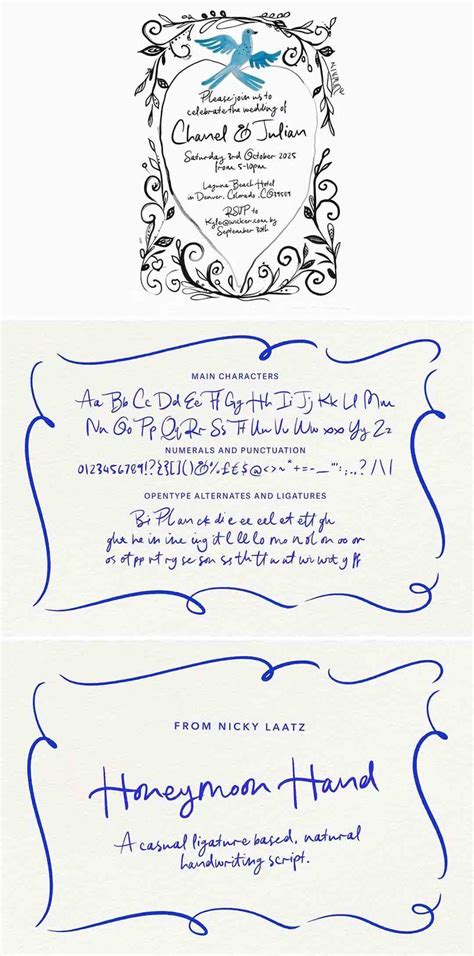 Please join us to
celebrate the wedding of
Chanel & Julian
Saturday 3rd October 2025
from 5-10pm
Laguna Beach Hotel
in Denver, Colorado, CO39559
RSVP to
Kyle@wicker.com by
September 30th
MAIN CHARACTERS
Aa Bb Cc Dd Ee Ff Gg Hh Ii Jj Kk Ll Mm
Nn Oo Pp Qq Rr Ss Tt Uu Vv Ww Xx Yy Zz
NUMERALS AND PUNCTUATION
0123456789!?{}[]()&%£€$@<>~*+=-_"':;.,?/\|
OPENTYPE ALTERNATES AND LIGATURES
Bi Pl an ck di e ee el et ett gh
ght he in ine ing it ll le lo mo nd on oo or
os ot pp rt ry se son ss th tt w at wi wit y ff
FROM NICKY LAATZ
Honeymoon Hand
A casual ligature based, natural
handwriting script.